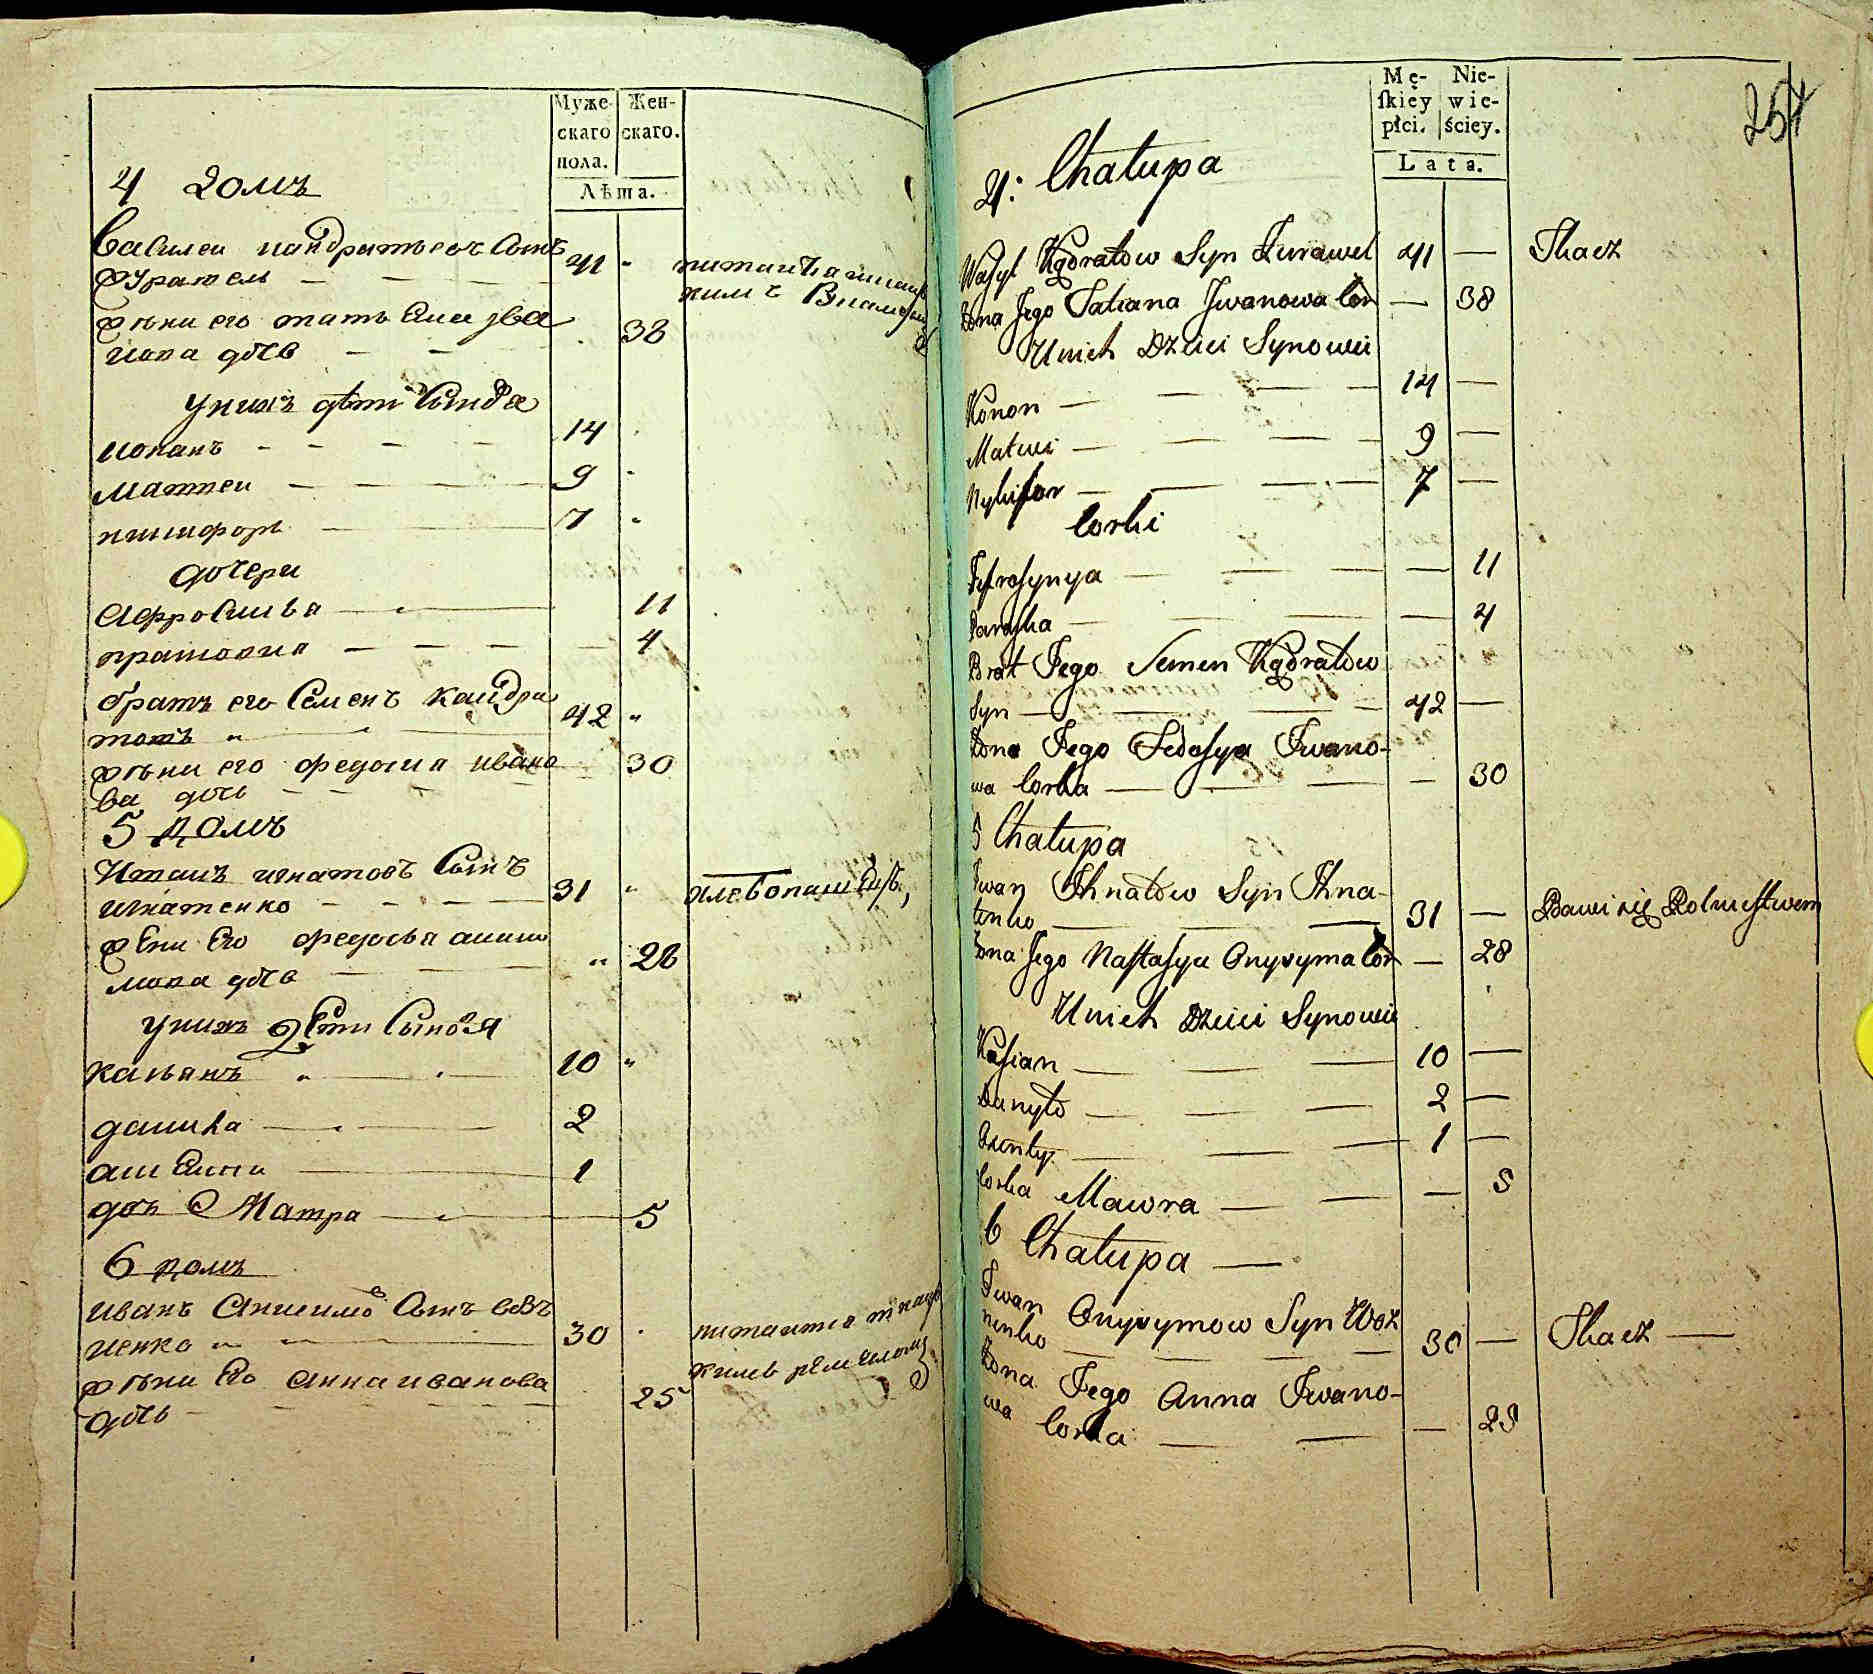 Муже-
скаго
пола.
Жен-
скаго.
Лѣта.
4 Домъ
Василеи кандратьевъ Сынъ
журавель
41
38
жена его татьяна ива
нова дочь
у нихъ дѣти Сыновя
конанъ 14
матвеи 9
никифоръ 7
дочери
афросинья 11
прасковия 4
братъ его Семенъ кандра
товъ 42
жена его федосия ивано 30
ва дочь
5 Домъ
Иванъ игнатовъ Сынъ
игнатенко 31
хлебопашецъ
жена Его федосья аниси 28
мова дочь
у нихъ дети Сыновя
касьянъ 10
данила 2
алексии 1
дочь Мавра 5
6 домъ
иванъ Анисимовъ Сынъ
ненко 30
питаится ткац
кимъ ремесломъ
жена Его анна иванова 25
дочь
Mę-
ſkiey
płci.
Nie-
wie-
ściey.
Lata.
257
4: Chałupa
Wasyl Kądratow Syn Żurawel 41 — Tkacz
Żona Jego Tatiana Jwanowa Cor — 38
U nich Dzieci Synowie
Konon 14 —
Matwi 9 —
Nykifor 7 —
Corki
Jefrosynya — 11
Paraska — 4
Brat Jego Semen Kądratow
Syn 42 —
Żona Jego Fedosya Jwano-
wa Corka — 30
5 Chałupa
Jwan Jhnatow Syn Jhna-
tenko 31 — Bawi się Rolnictwem
Żona Jego Nastasya Onysyma Cor — 28
U nich Dzieci Synowie
Kasian 10 —
Danyło 2 —
1 —
Corka Mawra — 5
6 Chałupa —
Jwan Onysymow Syn Woz
nenko 30 — Tkacz —
Żona Jego Anna Jwano-
wa Corka — 25